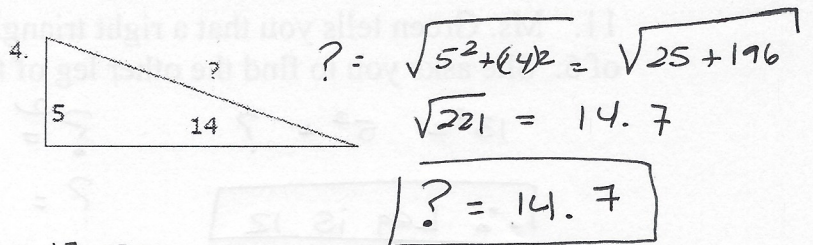 4.
?
5
14
? = √5²+(14)² = √25+196
√221 = 14.7
? = 14.7